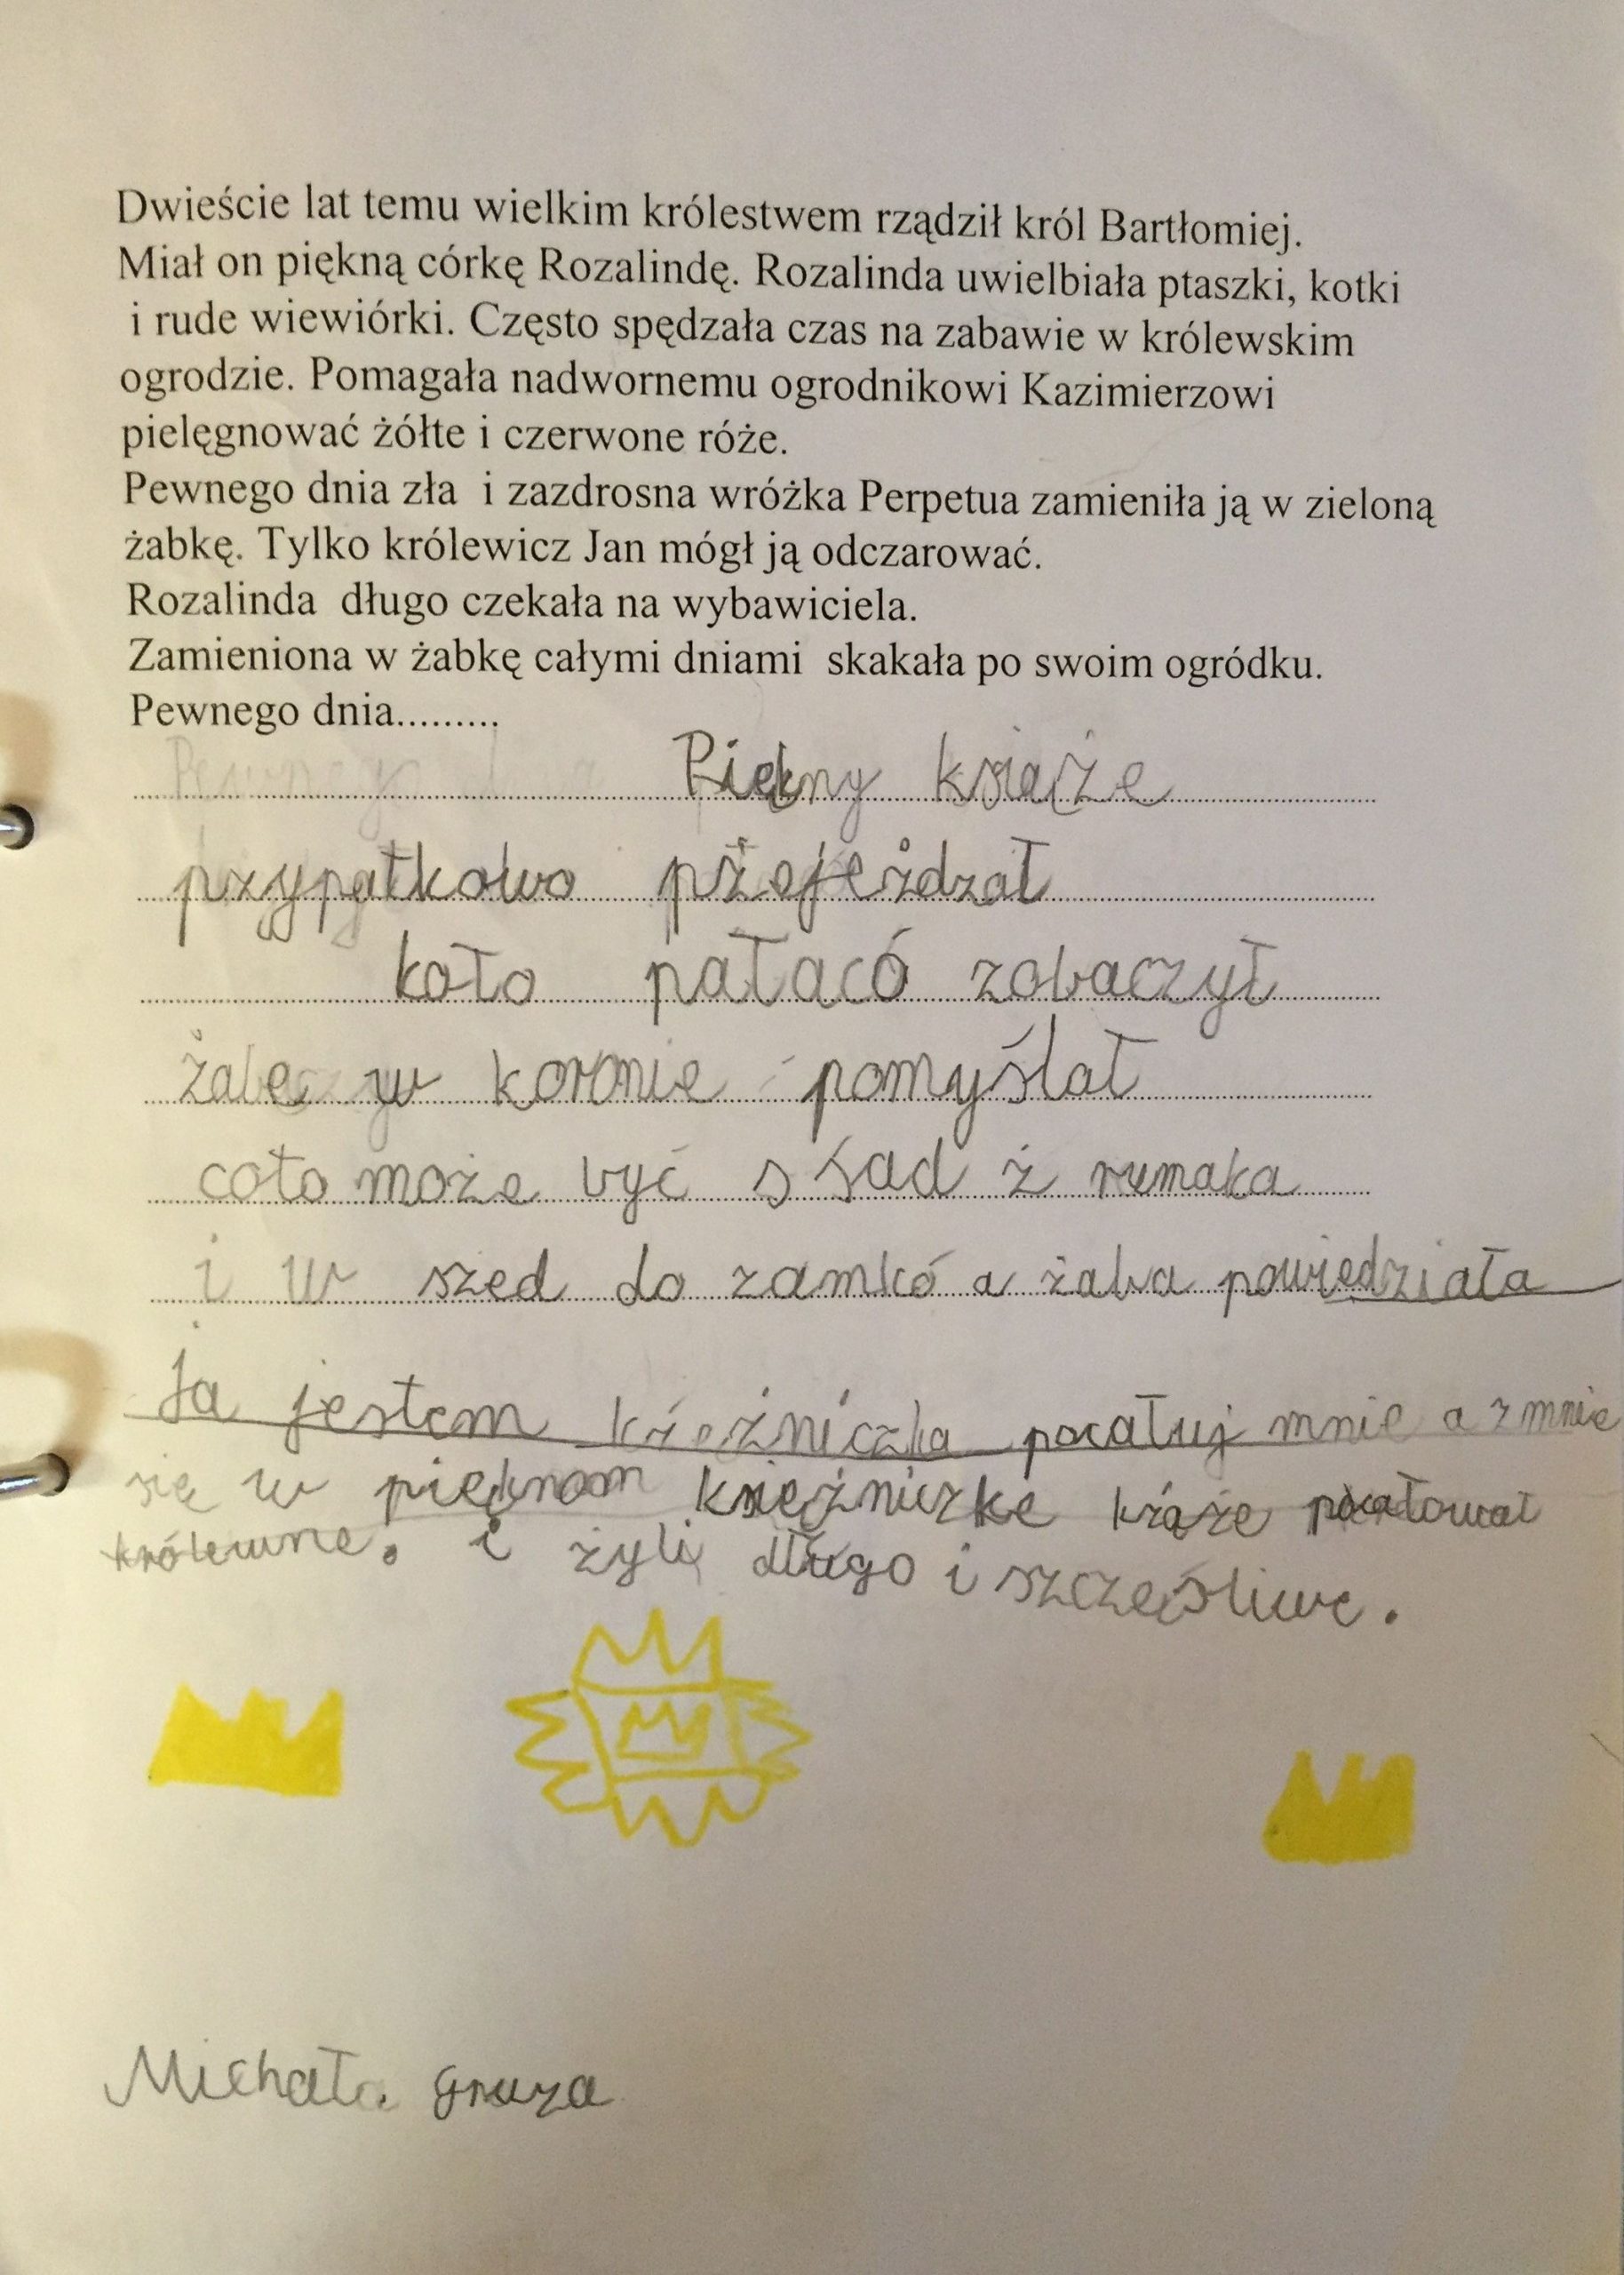 Dwieście lat temu wielkim królestwem rządził król Bartłomiej.
Miał on piękną córkę Rozalindę. Rozalinda uwielbiała ptaszki, kotki
i rude wiewiórki. Często spędzała czas na zabawie w królewskim
ogrodzie. Pomagała nadwornemu ogrodnikowi Kazimierzowi
pielęgnować żółte i czerwone róże.
Pewnego dnia zła i zazdrosna wróżka Perpetua zamieniła ją w zieloną
żabkę. Tylko królewicz Jan mógł ją odczarować.
Rozalinda długo czekała na wybawiciela.
Zamieniona w żabkę całymi dniami skakała po swoim ogródku.
Pewnego dnia.........
Piękny książe
przypatkowo pżejeżdzał
koło pałacó zobaczył
żabe w koronie pomyślał
coto może być s śad ż rumaka
i w szed do zamkó a żaba powiedziała
Ja jestem kśeżniczka pocałuj mnie a zmnie
się w pięknom księżniczke kśąże pocałował
królewne. i żyli długo i szczęśliwe.
Michał. gruza